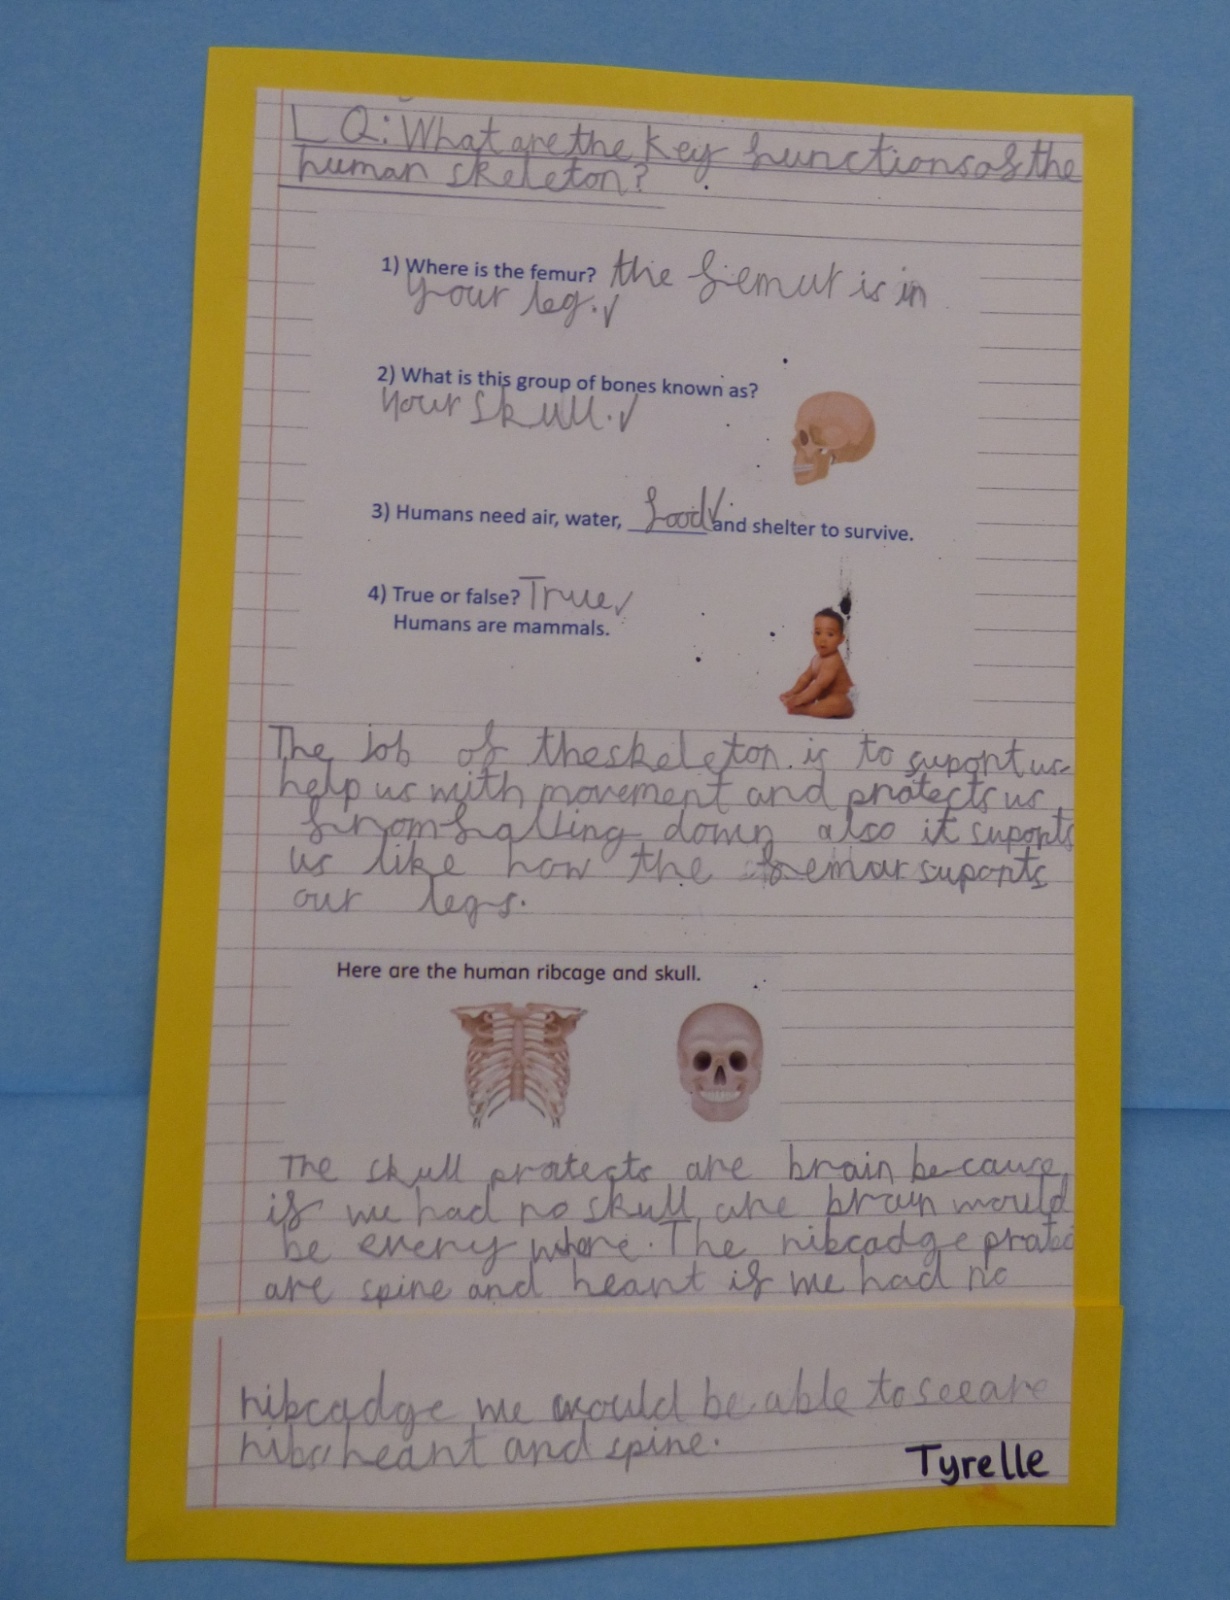 L Q: What are the key functions of the
human skeleton?
1) Where is the femur? the femur is in
your leg.
2) What is this group of bones known as?
Your skull.
3) Humans need air, water, food and shelter to survive.
4) True or false? True
Humans are mammals.
The job of the skeleton is to suport us
help us with movement and protects us
from falling down also it suports
us like how the femur suports
our legs.
Here are the human ribcage and skull.
The skull protects are brain because
if we had no skull are brain would
be every where. The ribcadge
are spine and heart if we had no
ribcadge we would be able to see are
ribs heart and spine.
Tyrelle